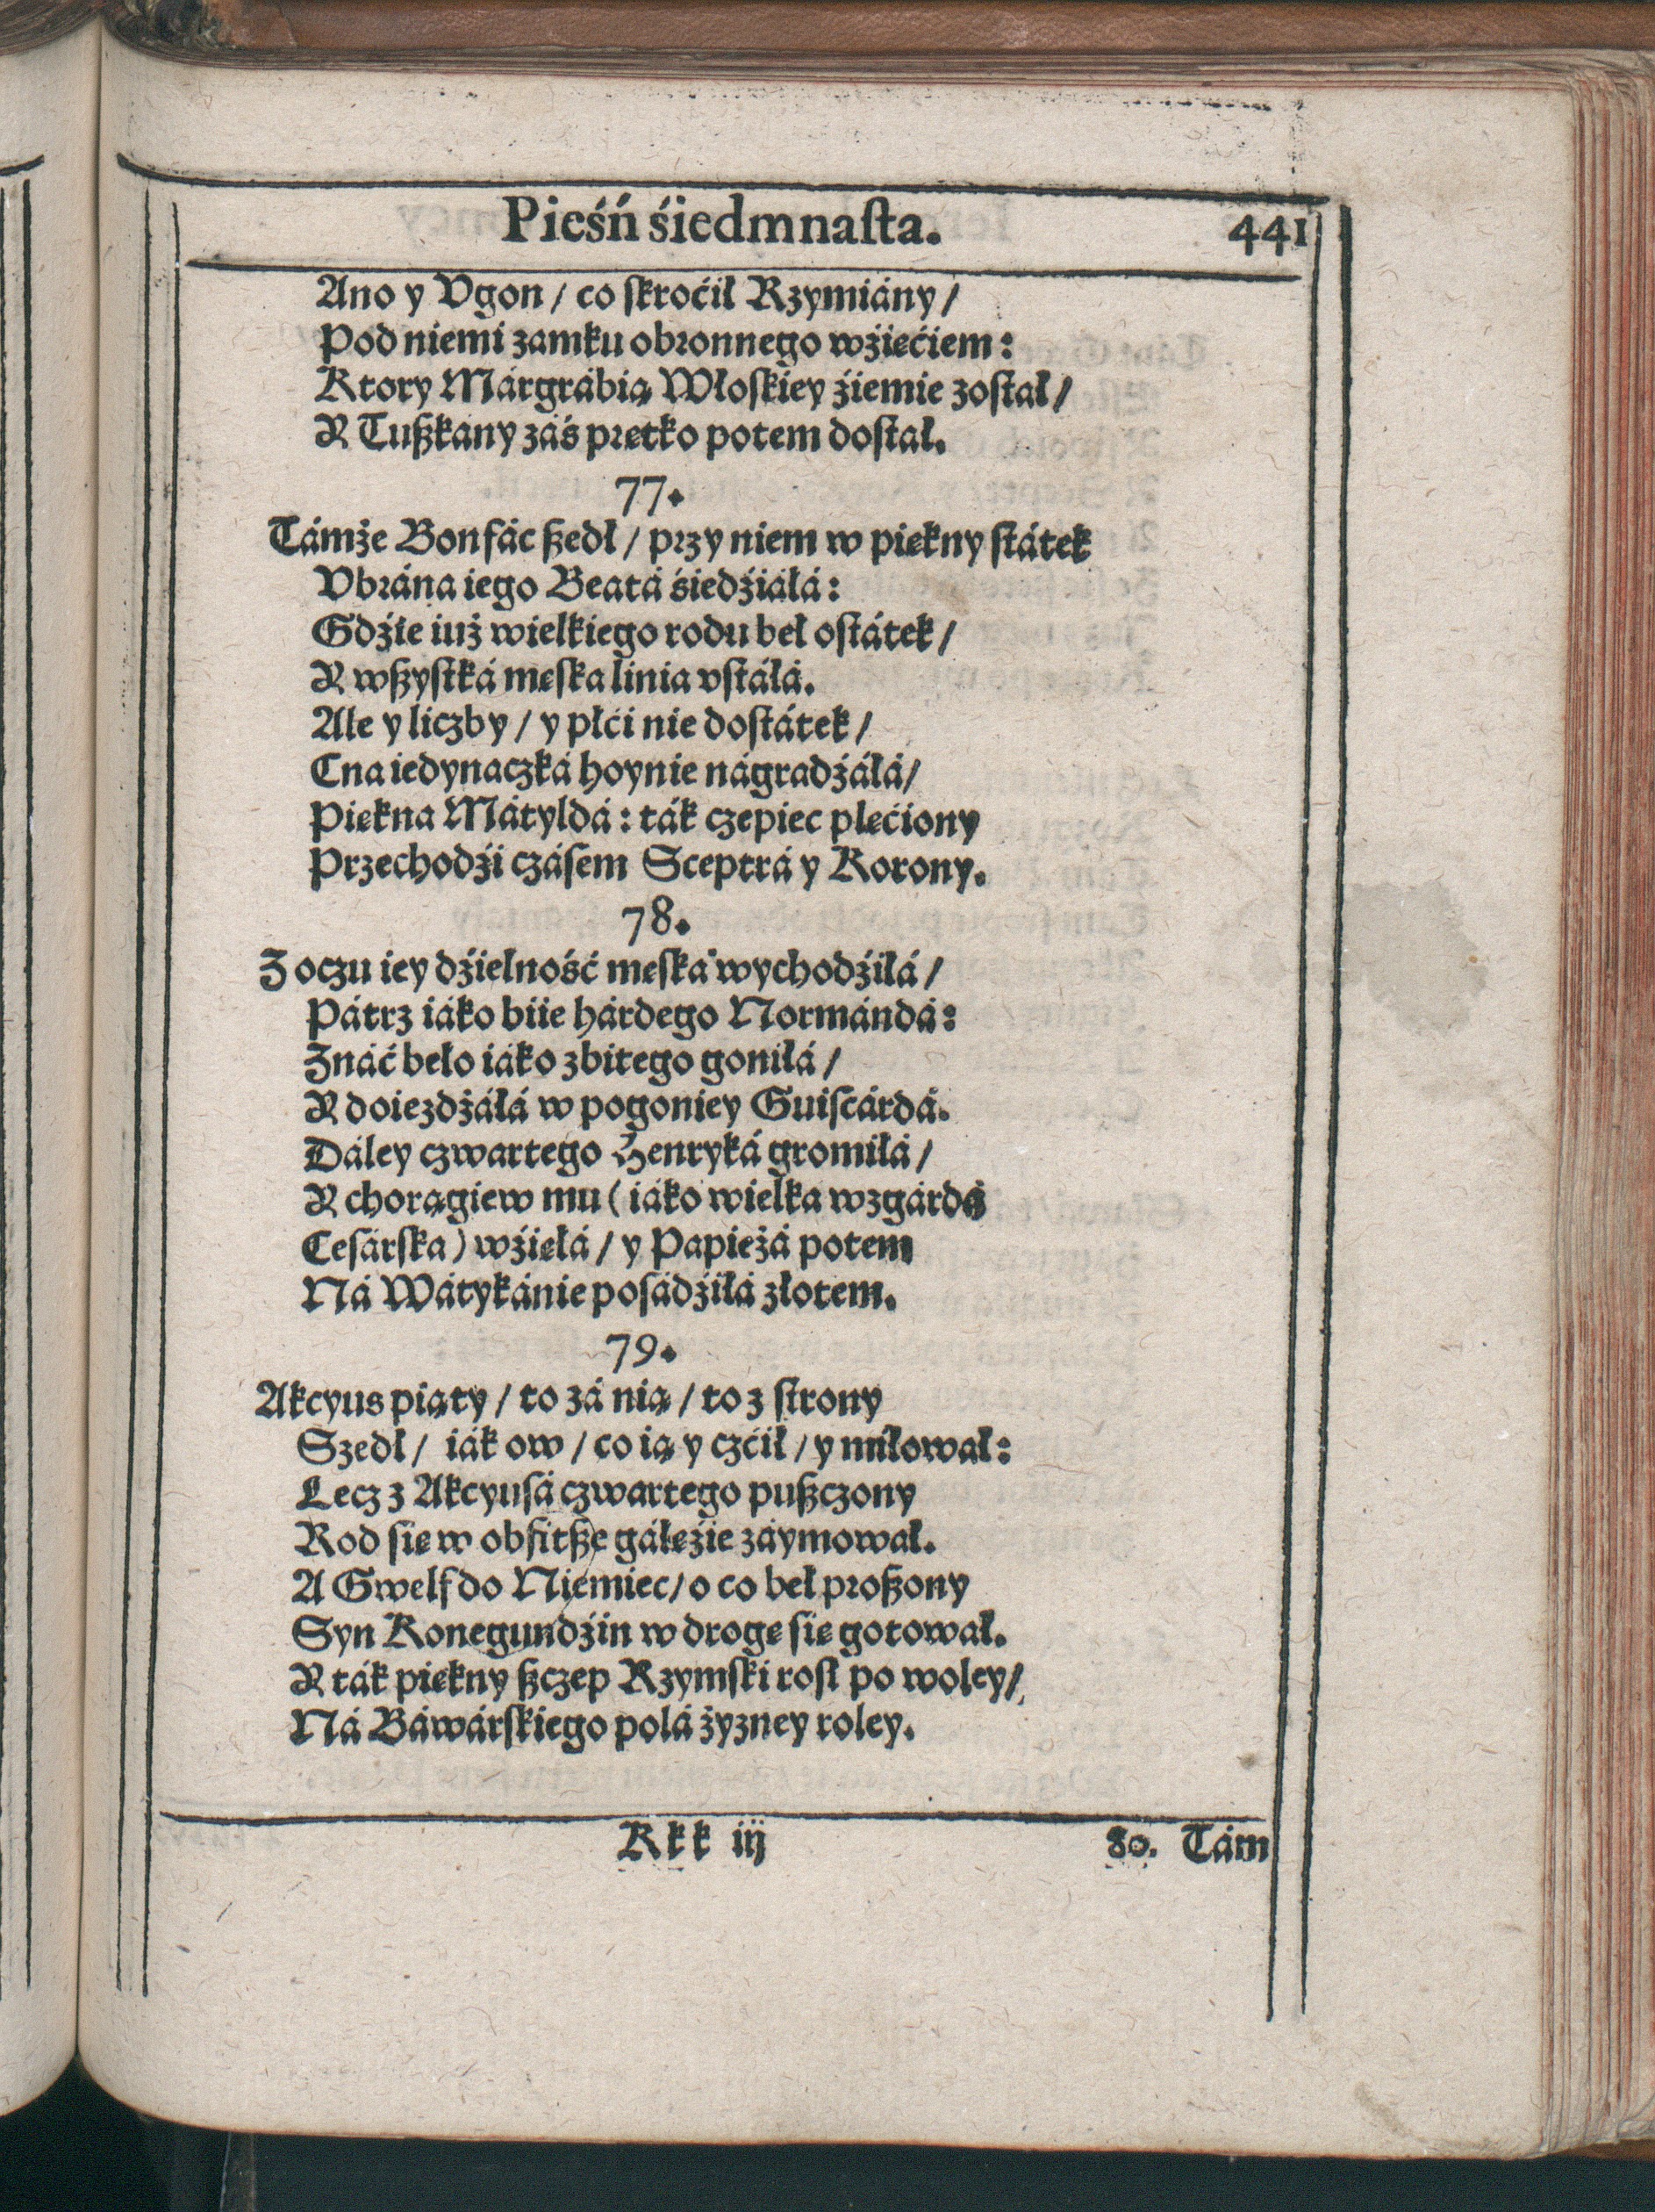 Pieśń śiedmnaſta. 441
Ano y Vgon / co ſkroćił Rzymiány /
Pod niemi zamku obronnego wźięćiem:
Ktory Márgrábią Włoſkiey źiemie zoſtał /
Y Tuſzkány záś prętko potem doſtał.
77.
Támże Bonfác ſzedł / przy niem w piękny ſtátek
Vbrána iego Beatá śiedźiáłá:
Gdźie iuż wielkiego rodu beł oſtátek /
Y wſzyſtká męſka linia vſtáłá.
Ale y liczby / y płći nie doſtátek /
Cna iedynaczká hoynie nágradźáłá /
Piękna Mátyldá: ták czepiec plećiony
Przechodźi czáſem Sceptrá y Korony.
78.
Z oczu iey dźielność męſka wychodźiłá /
Pátrz iáko biie hárdego Normándá:
Znáć beło iáko zbitego goniłá /
Y doiezdżáłá w pogoniey Guiſcárdá.
Dáley czwartego Henryká gromiłá /
Y chorągiew mu (iáko wielka wzgárdá
Ceſárſka) wźięłá / y Papieżá potem
Ná Wátykánie poſádźiłá złotem.
79.
Akcyus piąty / to zá nią / to z ſtrony
Szedł / iák ow / co ią y czćił / y miłował:
Lecz z Akcyuſá czwartego puſzczony
Rod ſię w obfitſze gáłęźie záymował.
A Gwelf do Niemiec / o co beł proſzony
Syn Konegundźin w drogę ſię gotował.
Y ták piękny ſzczep Rzymſki roſł po woley /
Ná Báwárſkiego polá żyzney roley.
Kkk iij 80. Tám